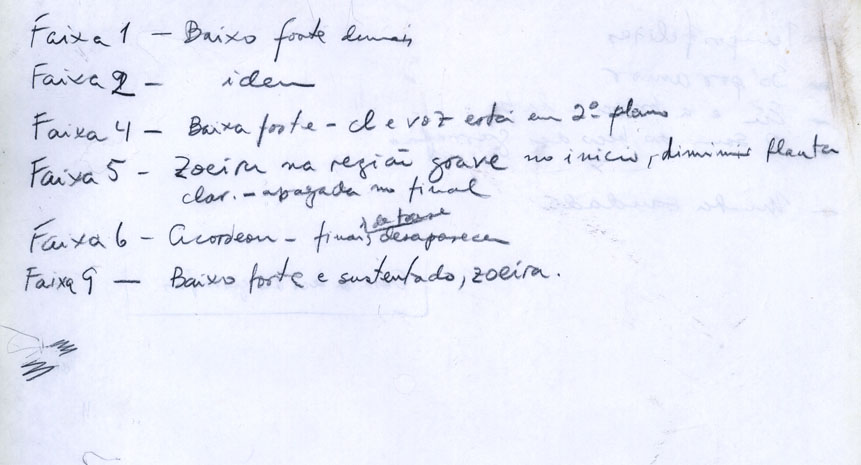 Faixa 1 – Baixo forte demais
Faixa 2 – idem
Faixa 4 – Baixo forte – cl e voz está em 2º plano
Faixa 5 – Zoeira na região grave no início, diminuir flauta
clar. – apagada no final
Faixa 6 – Acordeon – finais de frase desaparecem
Faixa 9 – Baixo forte e sustentado, zoeira.